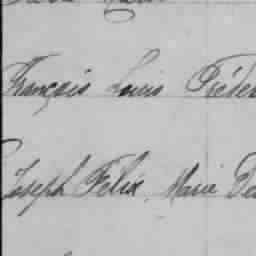 François Louis Fréder
Joseph Félix, Marie De